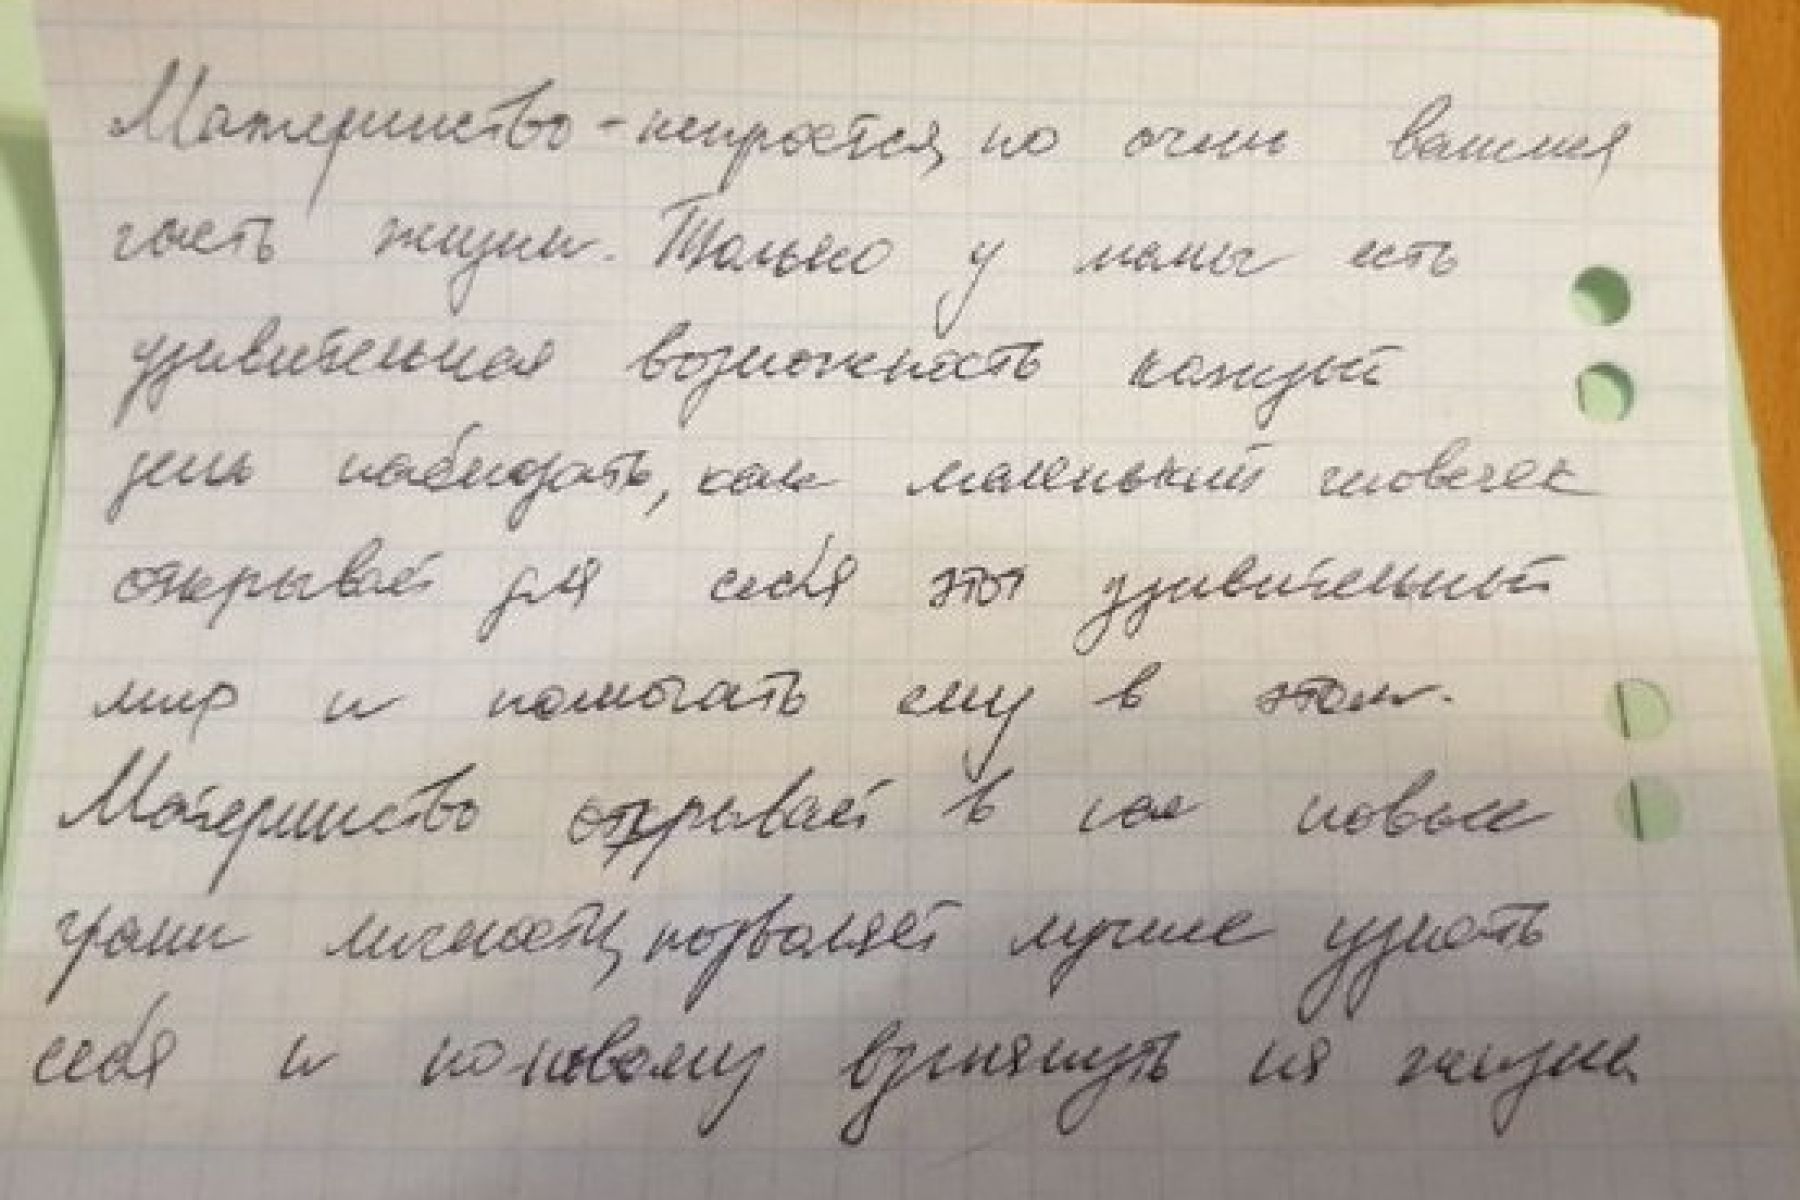 Материнство - непростая, но очень важная
часть жизни. Только у мамы есть
удивительная возможность каждый
день наблюдать, как маленький человечек
открывает для себя этот удивительный
мир и помогать ему в этом.
Материнство открывает в нас новые
грани личности, позволяет лучше узнать
себя и по-новому взглянуть на жизнь